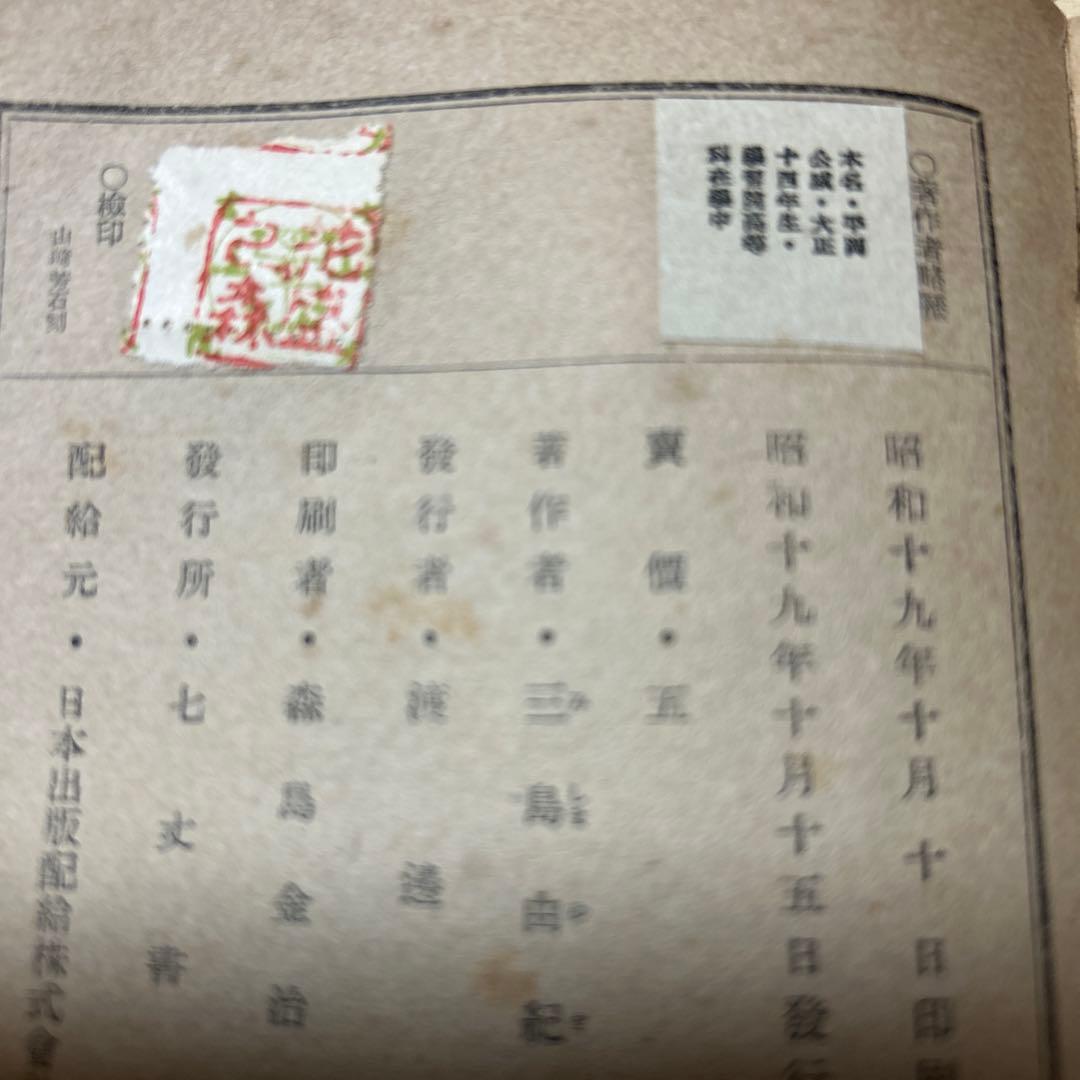 ○著作者略歴
本名・平岡
公威・大正
十四年生・
學習院高等
科在學中
○檢印
山﨑芳石刻
昭和十九年十月十日印
昭和十九年十月十五日發行
賣價・五
著作者・三島由紀
み
しま
ゆ
き
發行者・渡邊
印刷者・森島金治
發行所・七丈書
配給元・日本出版配給株式會